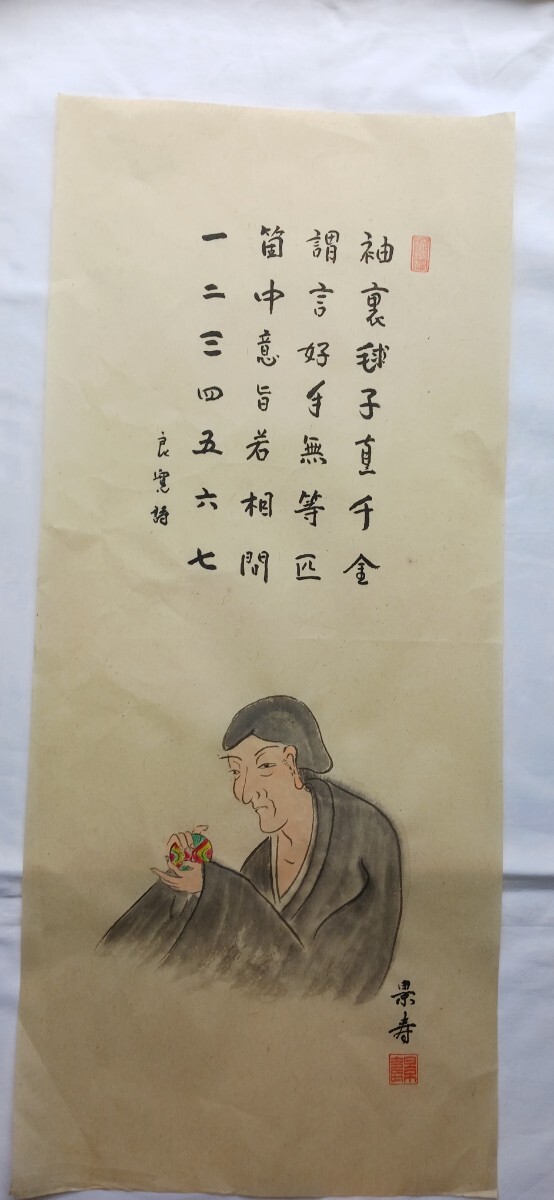 袖裏毬子直千金
謂言好手無等匹
箇中意旨若相問
一二三四五六七
良寛詩
景寿